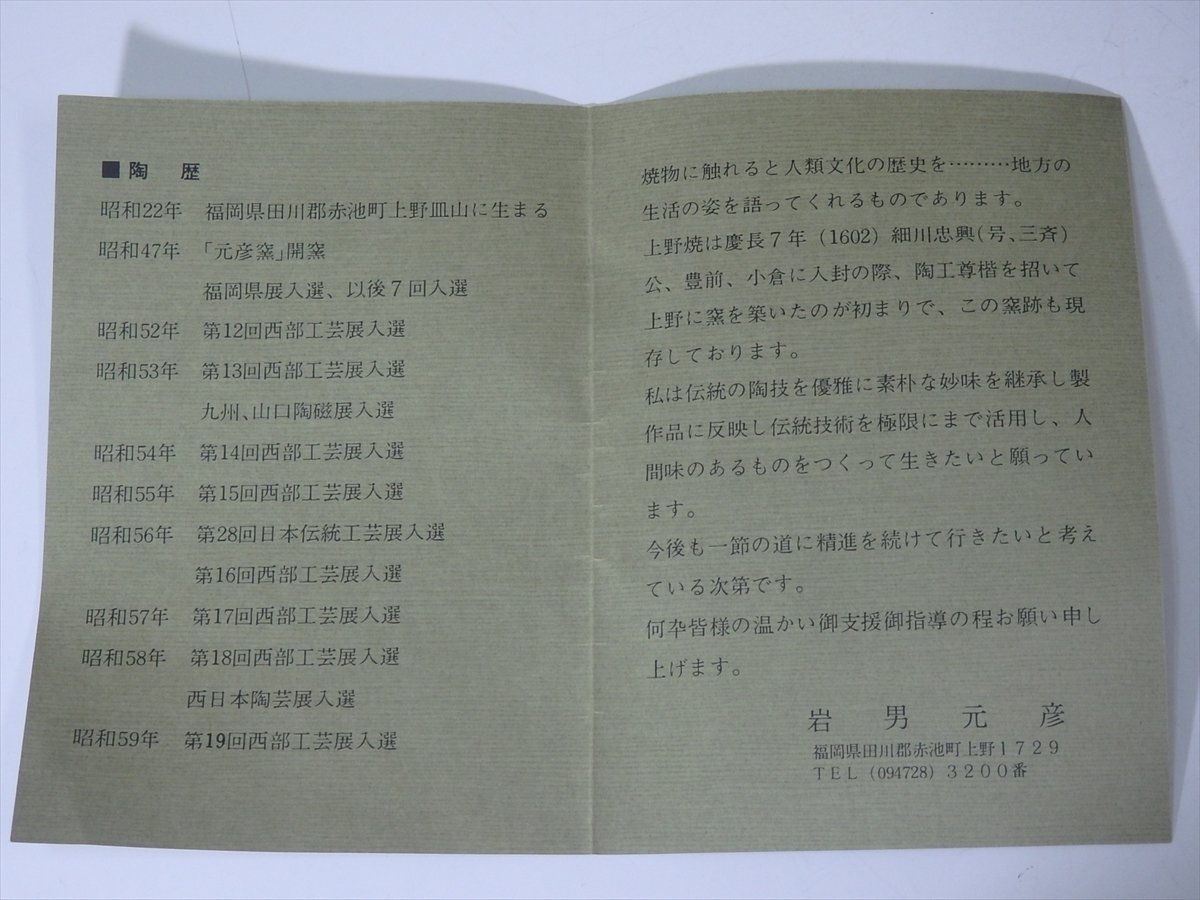 ■陶　歴
昭和22年　福岡県田川郡赤池町上野皿山に生まる
昭和47年　「元彦窯」開窯
福岡県展入選、以後7回入選
昭和52年　第12回西部工芸展入選
昭和53年　第13回西部工芸展入選
九州、山口陶磁展入選
昭和54年　第14回西部工芸展入選
昭和55年　第15回西部工芸展入選
昭和56年　第28回日本伝統工芸展入選
第16回西部工芸展入選
昭和57年　第17回西部工芸展入選
昭和58年　第18回西部工芸展入選
西日本陶芸展入選
昭和59年　第19回西部工芸展入選
焼物に触れると人類文化の歴史を………地方の
生活の姿を語ってくれるものであります。
上野焼は慶長7年（1602）細川忠興（号、三斉）
公、豊前、小倉に入封の際、陶工尊楷を招いて
上野に窯を築いたのが初まりで、この窯跡も現
存しております。
私は伝統の陶技を優雅に素朴な妙味を継承し製
作品に反映し伝統技術を極限にまで活用し、人
間味のあるものをつくって生きたいと願ってい
ます。
今後も一節の道に精進を続けて行きたいと考え
ている次第です。
何卆皆様の温かい御支援御指導の程お願い申し
上げます。
岩　男　元　彦
福岡県田川郡赤池町上野1729
TEL（094728）3200番